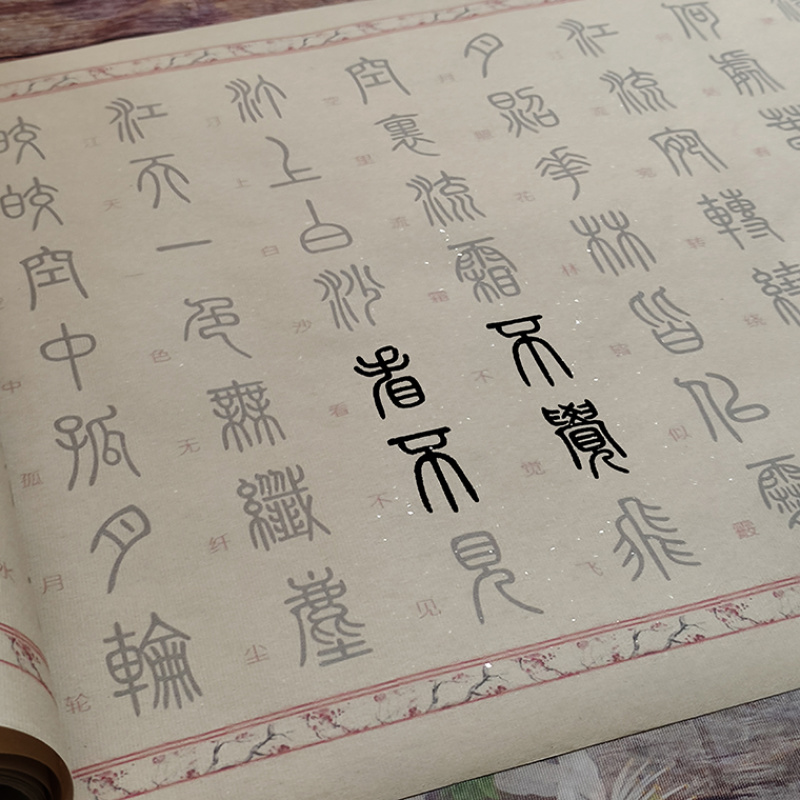 何處
江流宛轉繞
江流宛转绕
月照花林皆似霰
月照花林皆似霰
空裏流霜不覺飛
空里流霜不觉飞
汀上白沙看不見
汀上白沙看不见
江天一色無纖塵
江天一色无纤尘
皎皎空中孤月輪
中孤月轮